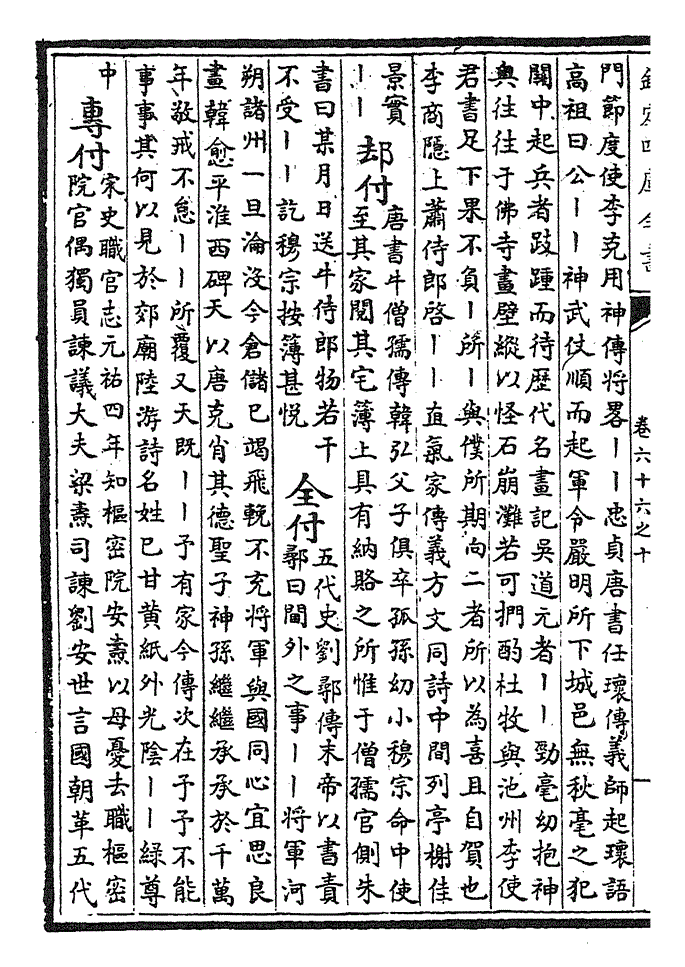 欽定四庫全書
卷六十六之十
門節度使李克用神傳將畧丨丨忠貞唐書任瓌傳義師起瓌語
高祖曰公丨丨神武仗順而起軍令嚴明所下城邑無秋毫之犯
關中起兵者跂踵而待歴代名畫記吳道元者丨丨勁毫幼抱神
奥往往于佛寺畫壁縱以怪石崩灘若可捫酌杜牧與池州李使
君書足下果不負丨所丨與僕所期向二者所以為喜且自賀也
李商隱上蕭侍郎啓丨丨直氣家傳義方文同詩中間列亭榭佳
景實
却付
唐書牛僧孺傳韓弘父子俱卒孤孫幼小穆宗命中使
丨丨
至其家閱其宅薄上具有納賂之所惟于僧孺官側朱
書曰某月日送牛侍郎物若干
不受丨丨訖穆宗按簿甚悦
全付
五代史劉鄩傳末帝以書責
鄩曰閫外之事丨丨將軍河
朔諸州一旦淪沒今倉儲已竭飛輓不充將軍與國同心宜思良
畫韓愈平淮西碑天以唐克肖其德聖子神孫繼繼承承於千萬
年敬戒不怠丨丨所覆又天既丨丨予有家今傳次在予予不能
事事其何以見於郊廟陸游詩名姓已甘黄紙外光陰丨丨緑尊
中
專付
宋史職官志元祐四年知樞密院安燾以母憂去職樞密
院官偶獨員諫議大夫梁燾司諫劉安世言國朝革五代